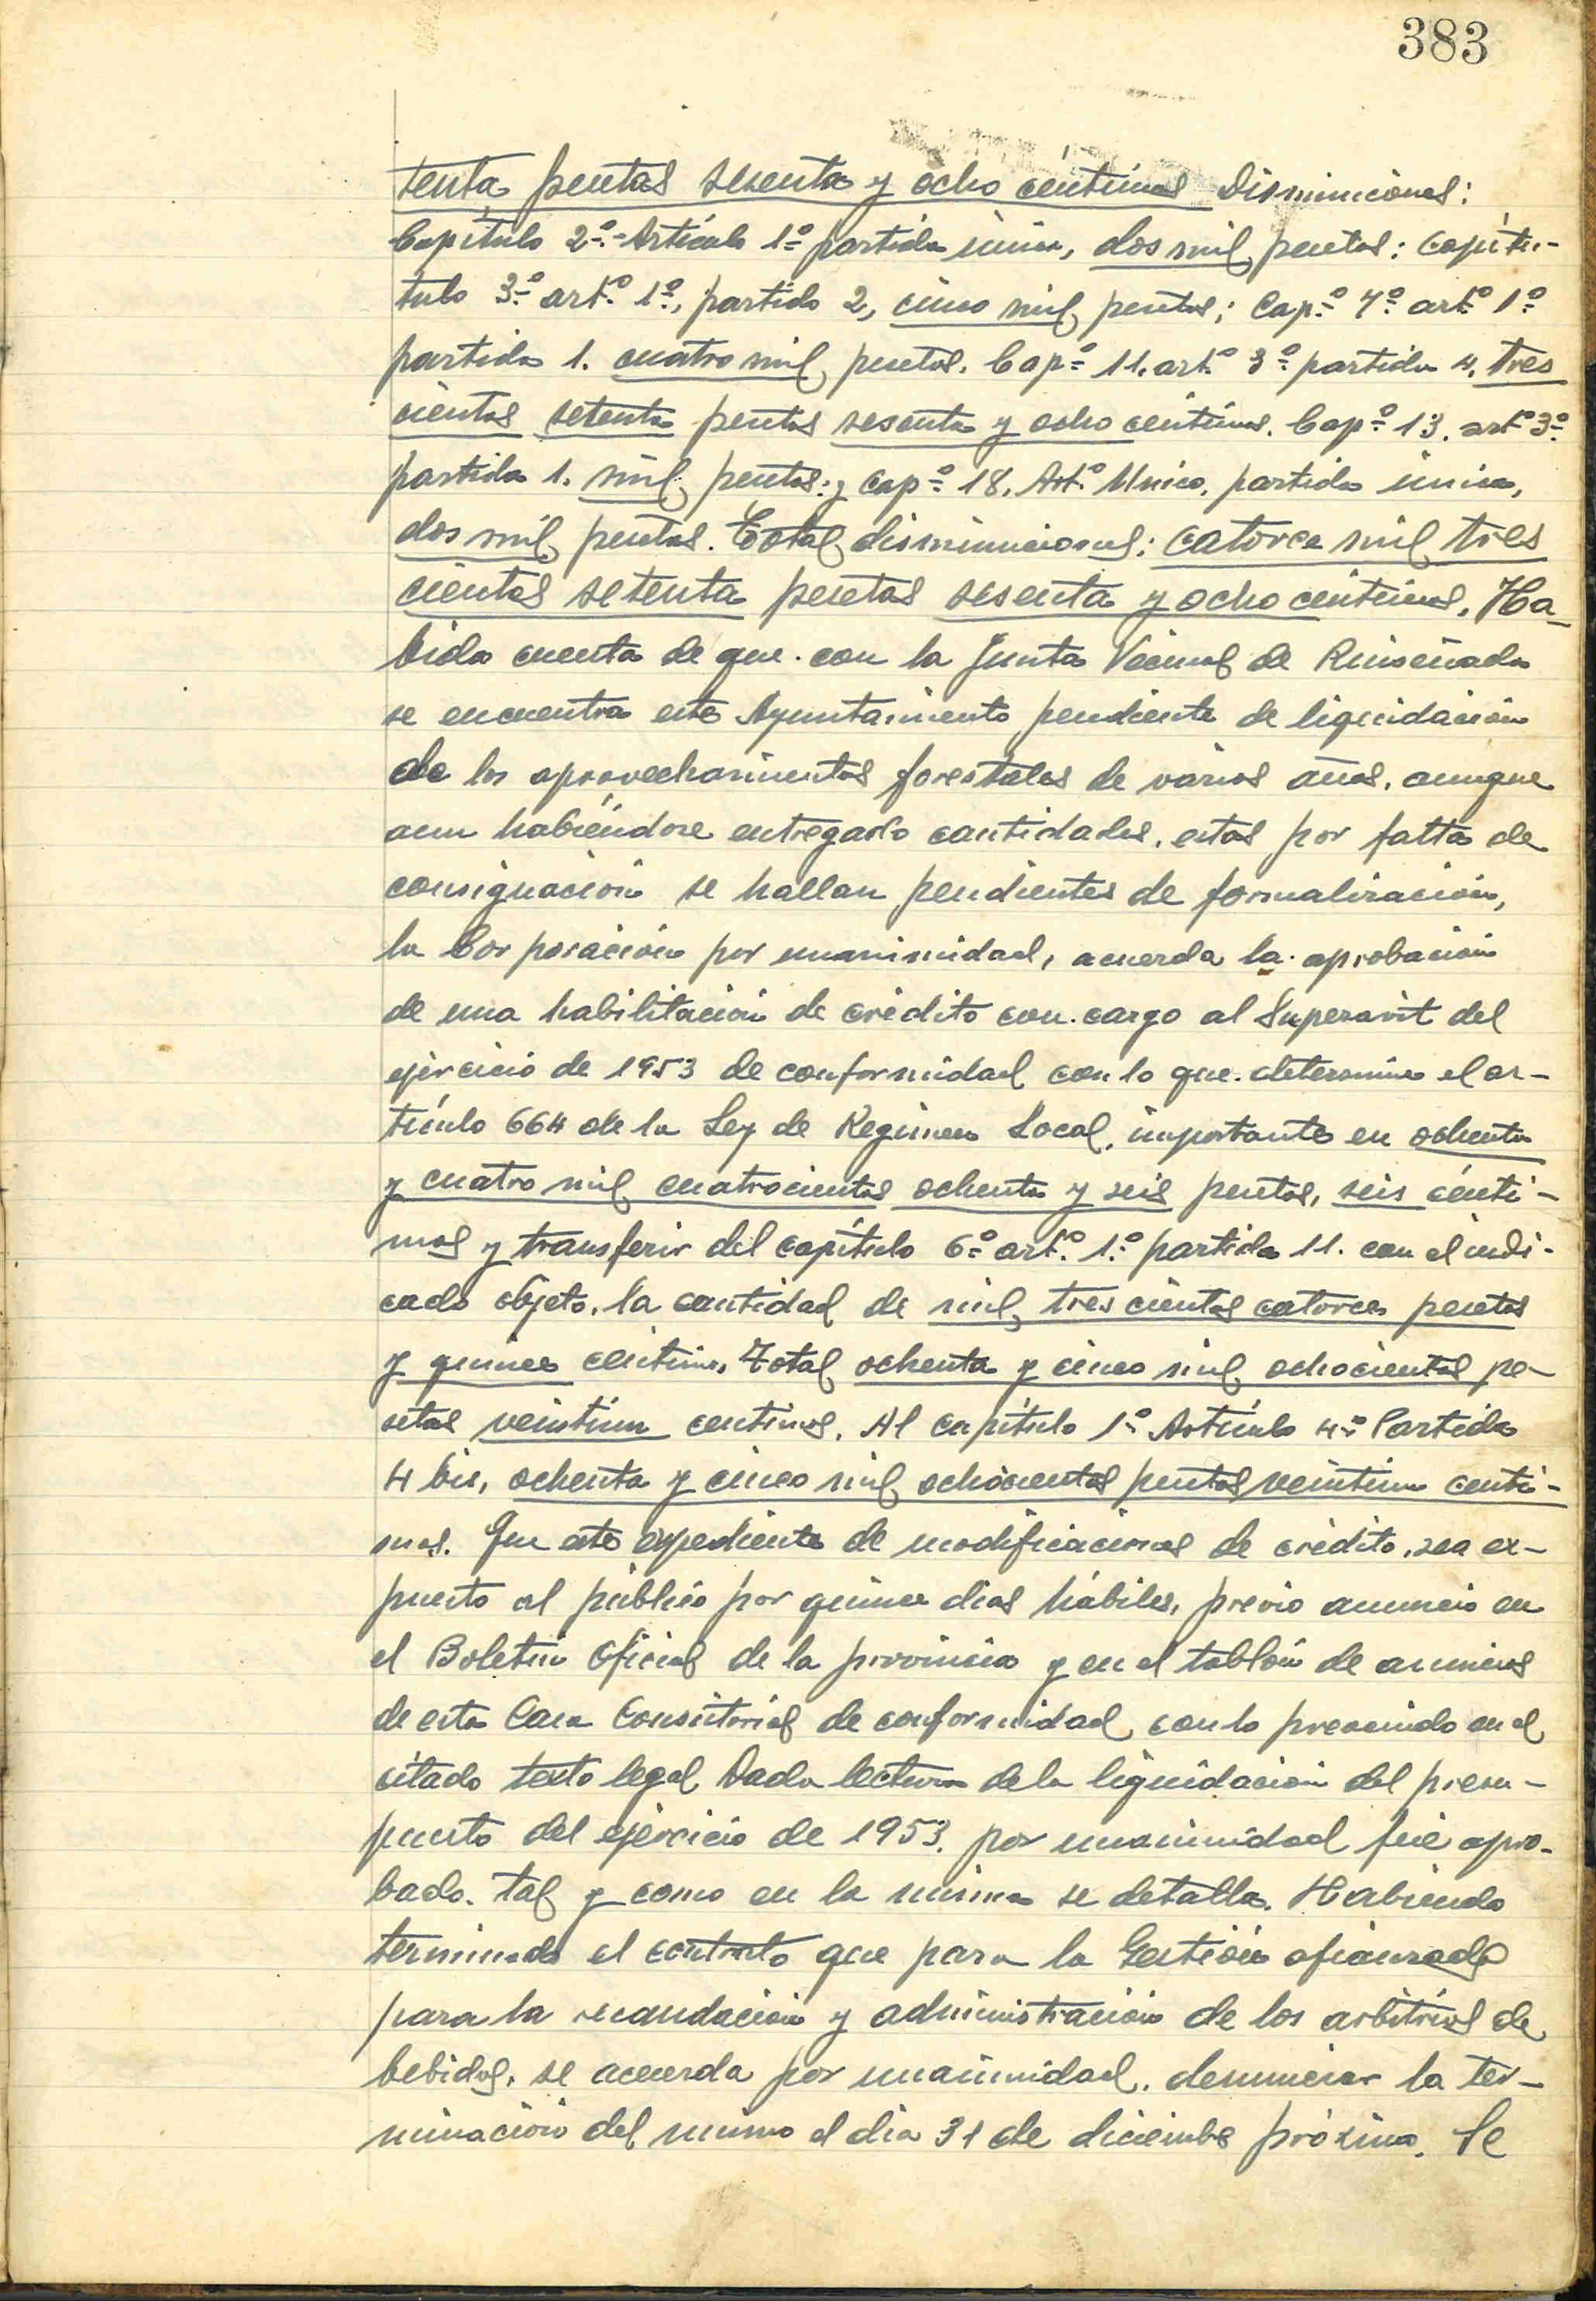 383
tenta pesetas sesenta y ocho céntimos Disminuciones:
Capítulo 2º-Artículo 1º partida única, dos mil pesetas: Capítu-
tulo 3º artº 1º, partida 2, cinco mil pesetas; Capº 7º artº 1º
partida 1. cuatro mil pesetas. Capº 11, artº 3º partida 4, tres
cientas setenta pesetas sesenta y ocho céntimos. Capº 13. artº 3º
partida 1. mil pesetas: y capº 18, Artº Unico, partida única,
dos mil pesetas. Total disminuciones: catorce mil tres
cientas setenta pesetas sesenta y ocho céntimos, Ha-
bida cuenta de que con la Junta Vecinal de Ruiseñada
se encuentra este Ayuntamiento pendiente de liquidación
de los aprovechamientos forestales de varios años, aunque
aun habiéndose entregado cantidades, estas por falta de
consignación se hallan pendientes de formalización,
la Corporación por unanimidad, acuerda la aprobación
de una habilitación de crédito con cargo al Superavit del
ejercicio de 1953 de conformidad con lo que determina el ar-
tículo 664 de la Ley de Regimen Local, importante en ochenta
y cuatro mil cuatrocientas ochenta y seis pesetas, seis cénti-
mos y transferir del capítulo 6º artº 1º partida 11. con el indi-
cado objeto, la cantidad de mil, tres cientas catorce pesetas
y quince centimos, Total ochenta y cinco mil ochocientas pe-
setas veintiun centimos. Al capítulo 1º Artículo 4º Partida
4 bis, ochenta y cinco mil ochocientas pesetas veintiun centi-
mos. Que este expediente de modificaciones de crédito, sea ex-
puesto al público por quince dias hábiles, previo anuncio en
el Boletin Oficial de la provincia y en el tablón de anuncios
de esta Casa Consistorial de conformidad con lo prevenido en el
citado texto legal Dada lectura de la liquidacion del presu-
puesto del ejercicio de 1953. por unanimidad fué apro-
bado. tal y como en la misma se detalla. Habiendo
terminado el contrato que para la Gestión afianzada
para la recaudación y administración de los arbitrios de
bebidas, se acuerda por unanimidad, denunciar la ter-
minación del mismo el dia 31 de diciembre próximo. Se